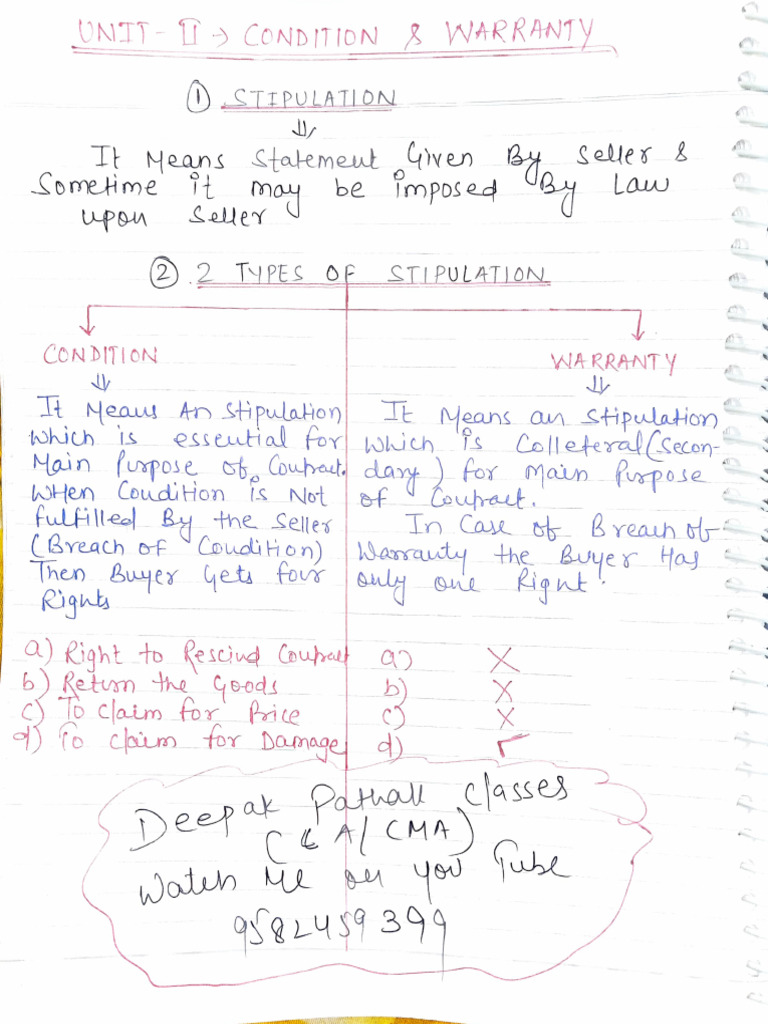 UNIT-II → CONDITION & WARRANTY
① STIPULATION
⇓
It Means Statement Given By Seller &
Sometime it may be imposed By Law
upon Seller
② . 2 TYPES OF STIPULATION
CONDITION
⇓
It Means An Stipulation
which is essential for
Main Purpose of Contract.
WHEN Condition is Not
fulfilled By the Seller
(Breach of Condition)
Then Buyer Gets four
Rights
a) Right to Rescind Contract
b) Return the Goods
c) To Claim for Price
d) To Claim for Damage
WARRANTY
⇓
It Means an Stipulation
which is Colleteral (Secon-
dary) for Main Purpose
of Contract.
In Case of Breach of
Warranty the Buyer Has
only one Right.
a) X
b) X
c) X
d) ✓
Deepak Pathak Classes
(CA/CMA)
Watch Me on You Tube
9582459399